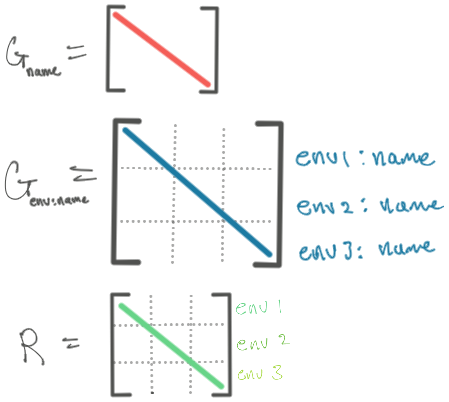 G name =
G env:name =
env1: name
env2: name
env3: name
R =
env 1
env 2
env 3